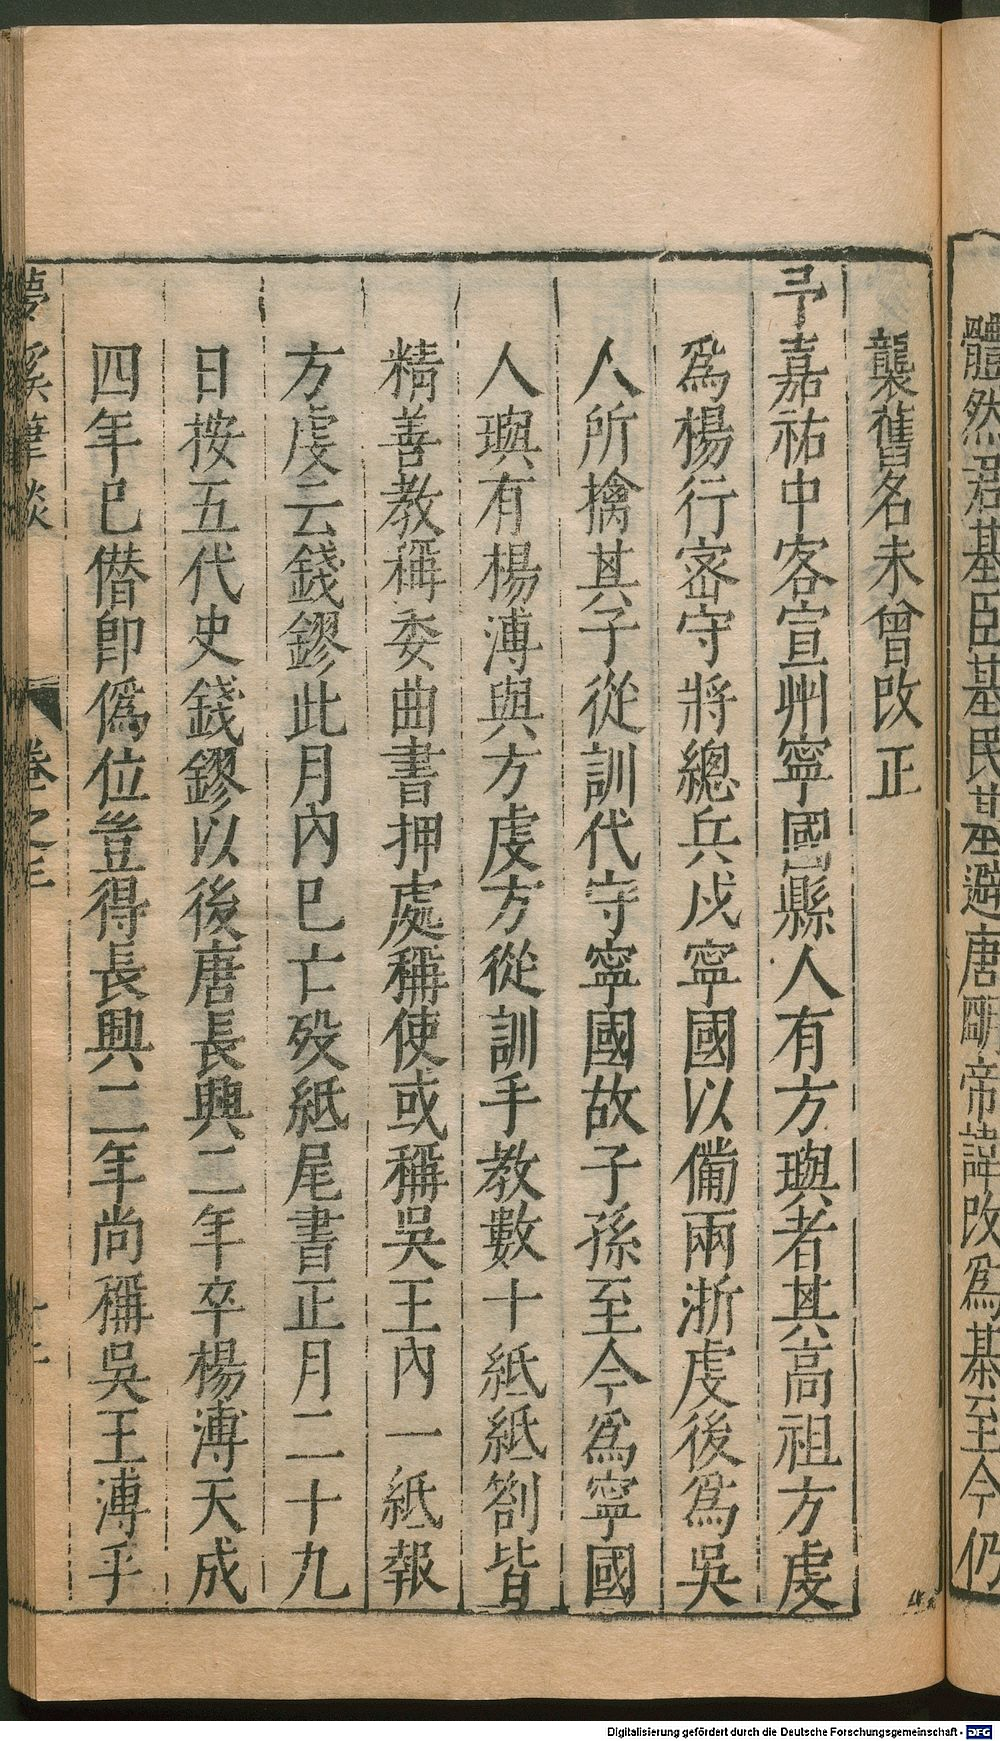 體然君基臣基民基避唐明帝諱改爲棊至今仍
襲舊名未曾改正
予嘉祐中客宣州寧國縣人有方璵者其高祖方虔
爲楊行密守將總兵戍寧國以僃兩浙虔後爲吳
人所擒其子從訓代守寧國故子孫至今爲寧國
人璵有楊溥與方虔方從訓手教數十紙紙劄皆
精善教稱委曲書押處稱使或稱吳王內一紙報
方虔云錢鏐此月內已亡歿紙尾書正月二十九
日按五代史錢鏐以後唐長興二年卒楊溥天成
四年已僣卽僞位豈得長興二年尚稱吳王溥乎
夢溪筆談 卷之三
Digitalisierung gefördert durch die Deutsche Forschungsgemeinschaft - DFG